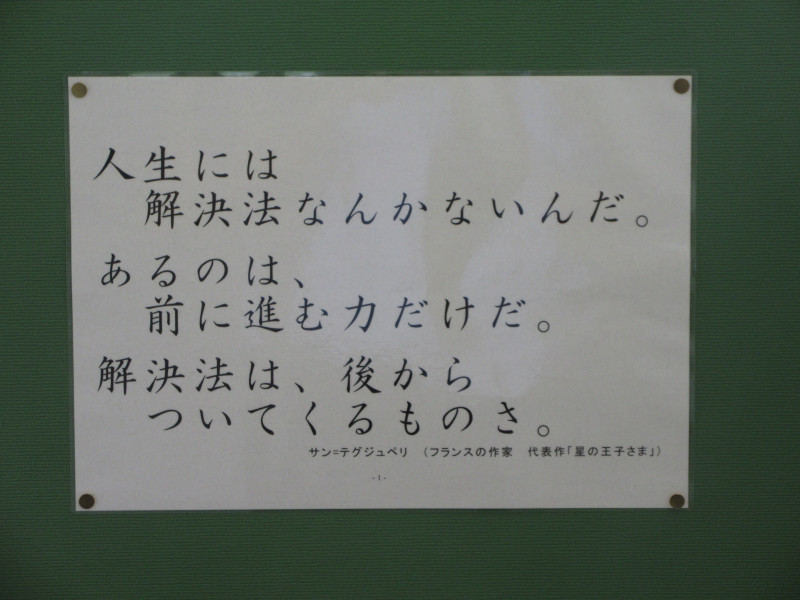 人生には
解決法なんかないんだ。
あるのは、
前に進む力だけだ。
解決法は、後から
ついてくるものさ。
サン=テグジュペリ （フランスの作家　代表作「星の王子さま」）
- 1 -